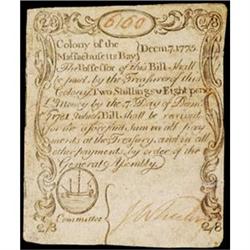 2/8 6160 2/8
Colony of the Decem.7.1775.
Massachusetts Bay}
The Possessor of this Bill shall
be paid by the Treasurer of this
Colony Two Shillings & Eight pen.
L. Money by the 7. Day of Decm.
1781 which Bill shall be receivd
for the aforesaid Sum in all pay
ments at the Treasury, and in all
other payments by order of the
General Assembly.
Committee
2/8 2/8